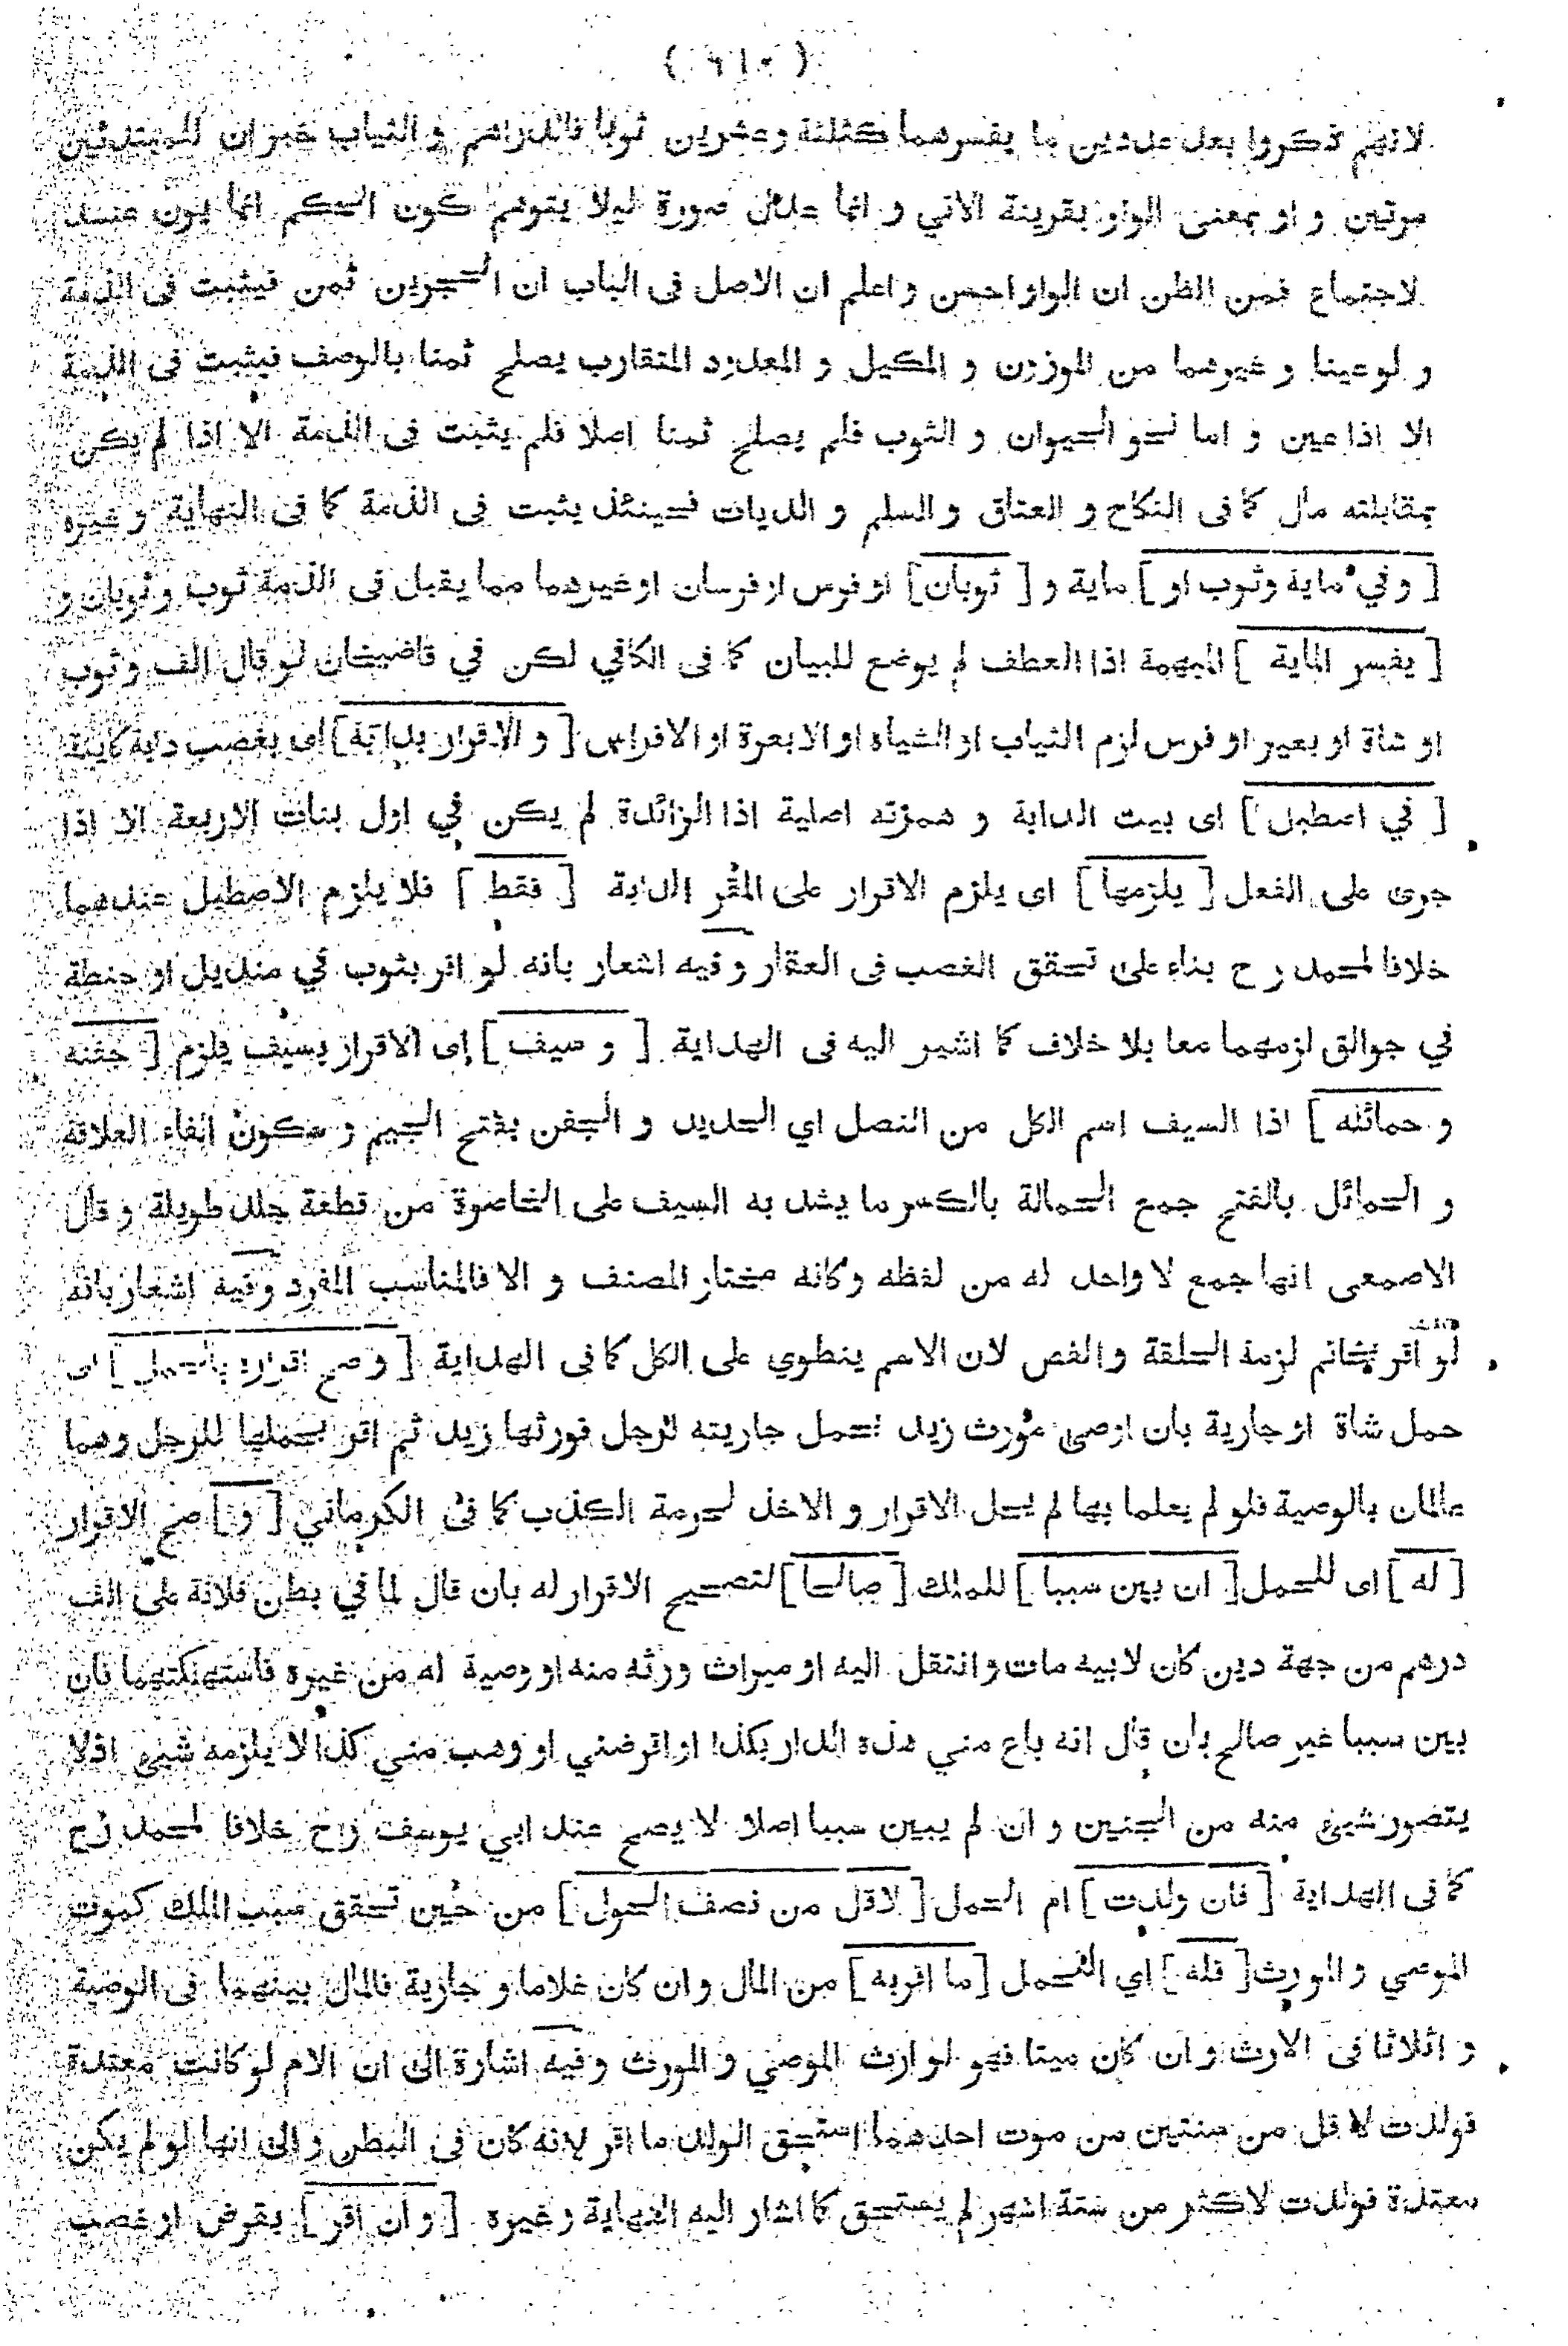 ( ٦١٢ )
لانهم ذكروا بعد عددين ما يفسرهما كثلثة وعشرين ثوبا فالدراهم و الثياب خبران للمبتدئين
مرتين و او بمعنى الواو بقرينة الاتي و انما عدل صورة ليلا يتوهم كون الحكم انما يون عند
لاجتماع فمن الظن ان الواو احسن و اعلم ان الاصل فى الباب ان الحجرين ثمن فيثبت فى الذمة
و لو عينا و غيرهما من الموزون و المكيل و المعدود المتقارب يصلح ثمنا بالوصف فيثبت فى الذمة
الا اذا عين و اما نحو الحيوان و الثوب فلم يصلح ثمنا اصلا فلم يثبت فى الذمة الا اذا لم يكن
بمقابلته مال كما فى النكاح و العتاق و السلم و الديات فحينئذ يثبت فى الذمة كما فى النهاية و غيره
[ وفي ماية وثوب او ] ماية و [ ثوبان ] او فرس او فرسان او غيرهما مما يقبل فى الذمة ثوب و ثوبان و
[ يفسر الماية ] المبهمة اذا العطف لم يوضع للبيان كما فى الكافي لكن في قاضيخان لو قال الف و ثوب
او شاة او بعير او فرس لزم الثياب او الشياه او الابعرة او الافراس [ و الاقرار بدابة ] اى بغصب دابة كاينة
[ في اصطبل ] اى بيت الدابة و همزته اصلية اذا الزائدة لم يكن في اول بنات الاربعة الا اذا
جرى على الفعل [ يلزمها ] اى يلزم الاقرار على المقر الدابة [ فقط ] فلا يلزم الاصطبل عندهما
خلافا لمحمد رح بناء على تحقق الغصب فى العقار و فيه اشعار بانه لو اقر بثوب في منديل او حنطة
في جوالق لزمهما معا بلا خلاف كما اشير اليه فى الهداية [ و سيف ] اى الاقرار بسيف يلزم [ جفنه
و حمائله ] اذا السيف اسم الكل من النصل اي الحديد و الجفن بفتح الجيم و سكون الفاء العلاقة
و الحمائل بالفتح جمع الحمالة بالكسر ما يشد به السيف على الخاصرة من قطعة جلد طويلة و قال
الاصمعى انها جمع لا واحد له من لفظه وكانه مختار المصنف و الا فالمناسب المفرد و فيه اشعار بانه
لو اقر بخاتم لزمه الحلقة والفص لان الاسم ينطوي على الكل كما فى الهداية [ و صح اقراره بالحمل ] اى
حمل شاة او جارية بان اوصى مورث زيد بحمل جاريته لرجل فورثها زيد ثم اقر بحملها للرجل وهما
عالمان بالوصية فلو لم يعلما بها لم يحل الاقرار و الاخذ لحرمة الكذب كما فى الكرماني [ و ] صح الاقرار
[ له ] اى للحمل [ ان بين سببا ] للملك [ صالحا ] لتصحيح الاقرار له بان قال لما في بطن فلانة على الف
درهم من جهة دين كان لابيه مات و انتقل اليه او ميراث ورثه منه او وصية له من غيره فاستهلكتهما فان
بين سببا غير صالح بان قال انه باع مني هذه الدار بكذا او اقرضني او وهب مني كذا لا يلزمه شيئ اذلا
يتصور شيئ منه من الجنين و ان لم يبين سببا اصلا لا يصح عند ابي يوسف رح خلافا لمحمد رح
كما فى الهداية [ فان ولدت ] ام الحمل [ لاقل من نصف الحول ] من حين تحقق سبب الملك كموت
الموصي و المورث [ فله ] اي الحمل [ ما اقر به ] من المال و ان كان غلاما و جارية فالمال بينهما فى الوصية
و اثلاثا فى الارث و ان كان ميتا فهو لوارث الموصي و المورث و فيه اشارة الى ان الام لو كانت معتدة
فولدت لاقل من سنتين من موت احدهما استحق الولد ما اقر لانه كان فى البطن و الى انها لو لم يكن
معتدة فولدت لاكثر من ستة اشهر لم يستحق كما اشار اليه النهاية و غيره [ و ان اقر ] بقرض او غصب